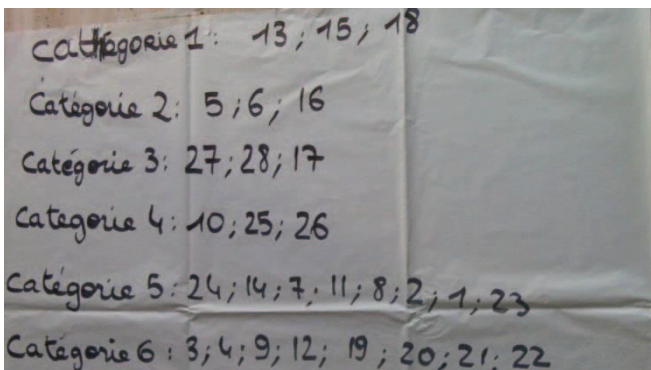 Catégorie 1 : 13 ; 15 ; 18
Catégorie 2 : 5 ; 6 ; 16
Catégorie 3 : 27 ; 28 ; 17
Categorie 4 : 10 ; 25 ; 26
Catégorie 5 : 24 ; 14 ; 7 ; 11 ; 8 ; 2 ; 1 ; 23
Catégorie 6 : 3 ; 4 ; 9 ; 12 ; 19 ; 20 ; 21 ; 22